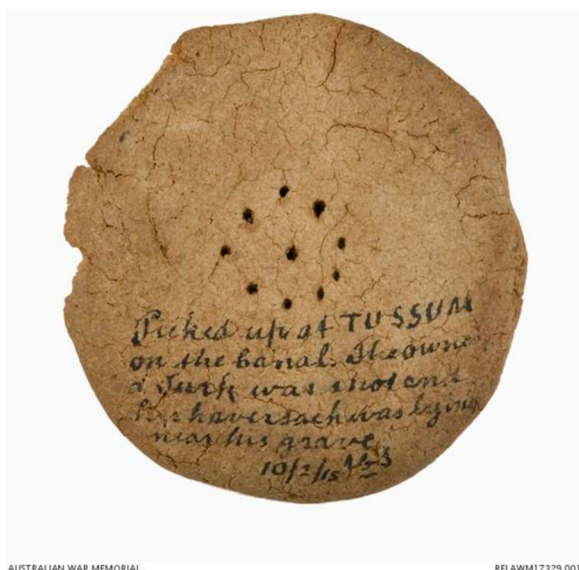 Picked up at TUSSUM
on the Canal. The owner
a Turk was shot and
his haversack was lying
near his grave
10/2/15
AUSTRALIAN WAR MEMORIAL
RELAWM17329.001